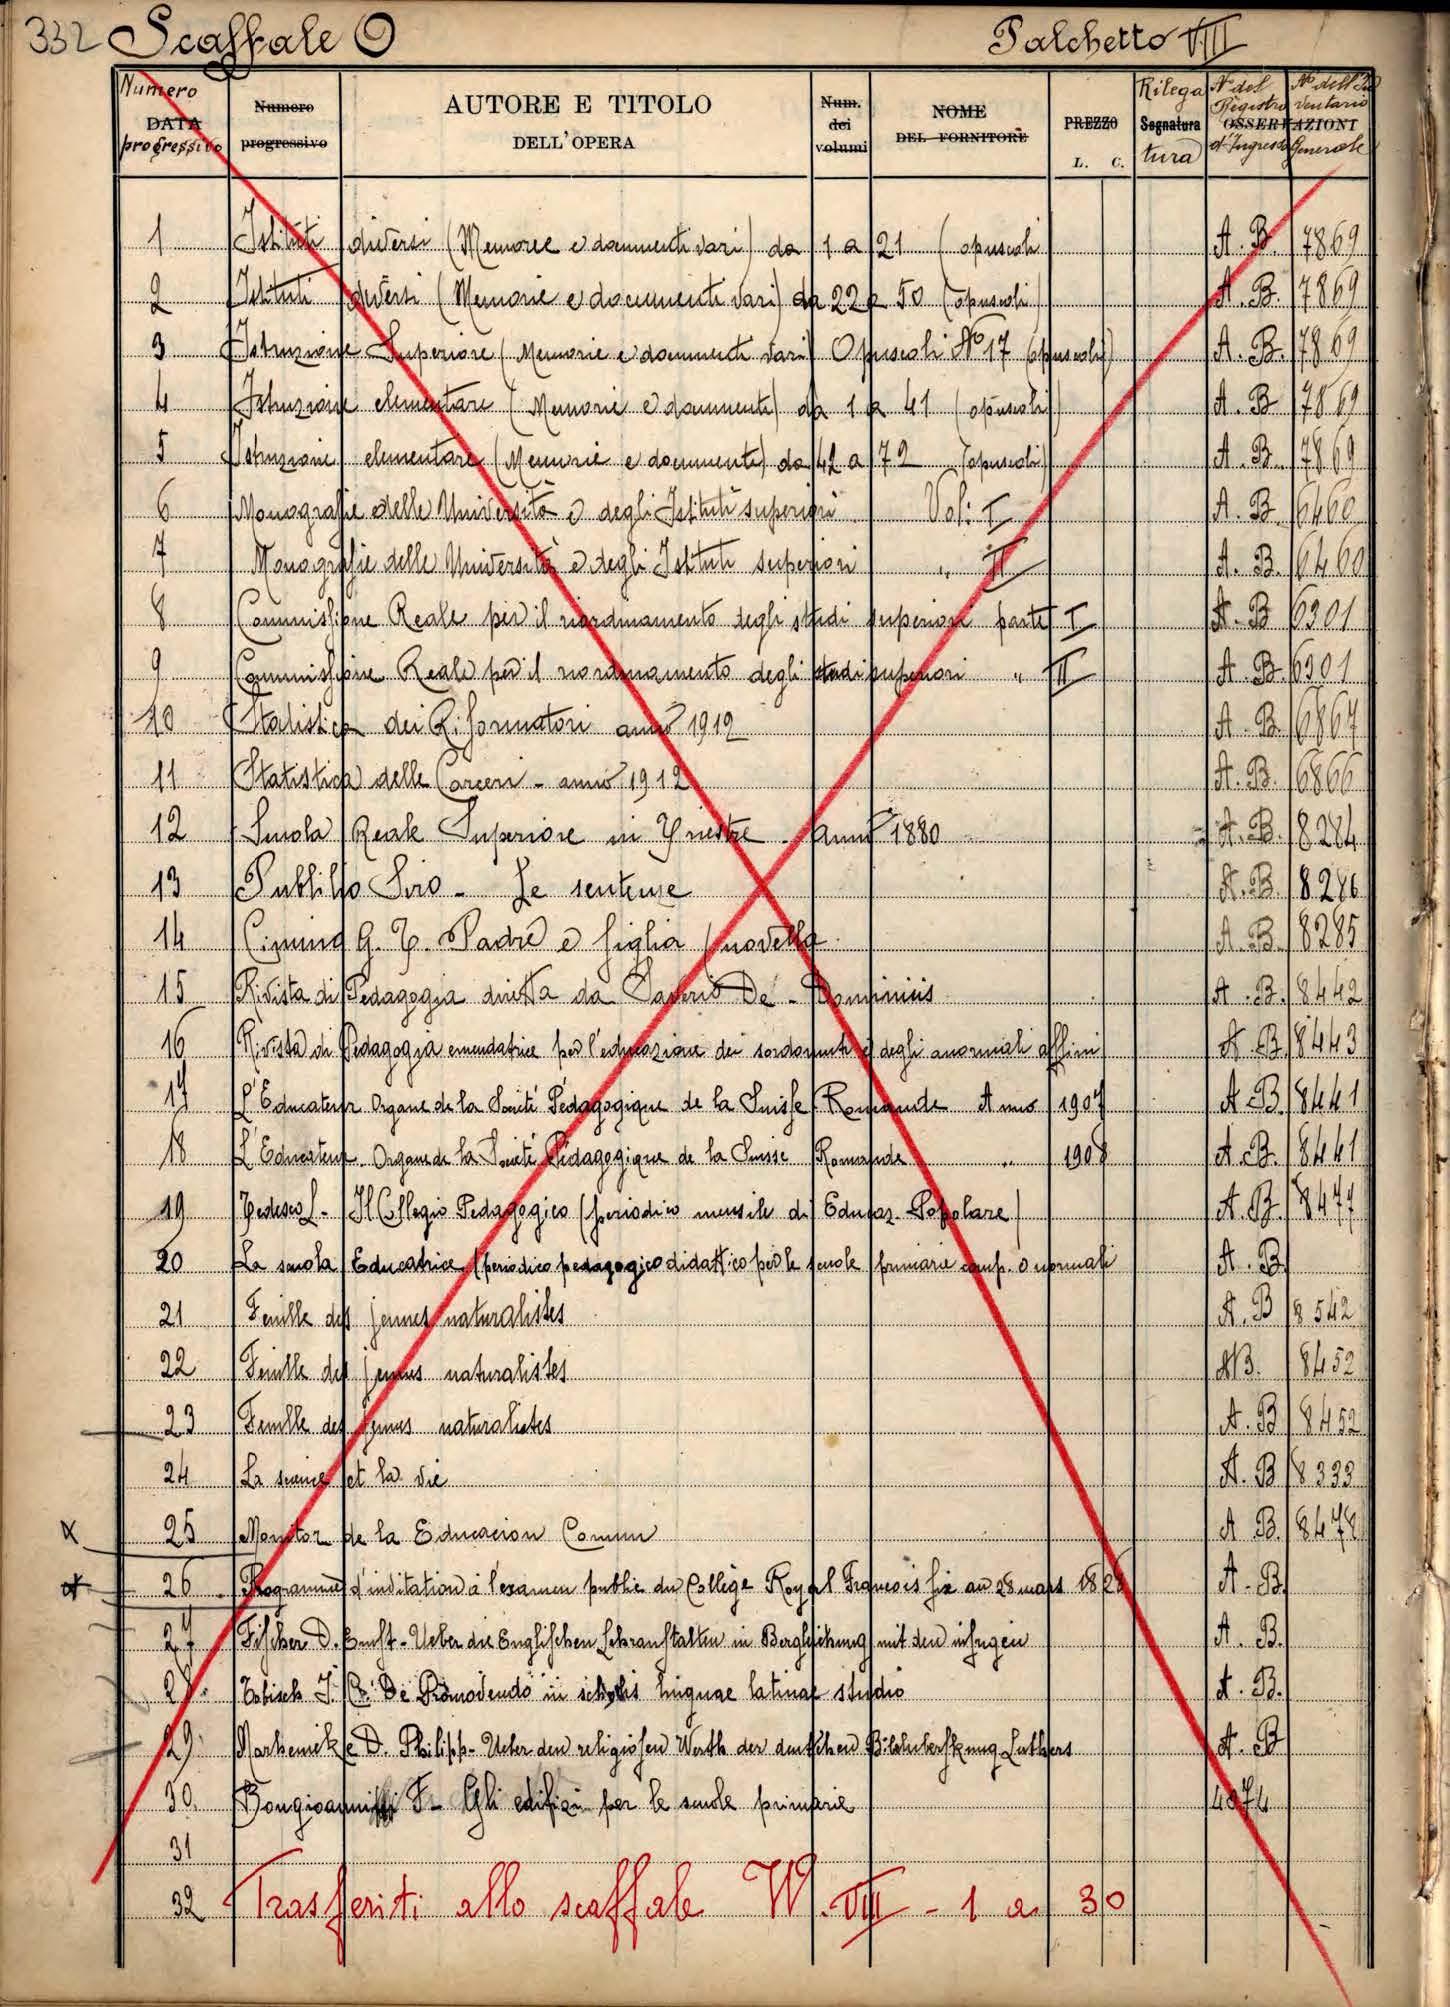 332 Scaffale O Palchetto VIII
Numero DATA progressivo Numero progressivo AUTORE E TITOLO DELL'OPERA Num. dei volumi NOME DEL FORNITORE PREZZO L. C. Rilega Segnatura tura Nº del Registro d'Ingresso OSSERVAZIONI Nº dell'Inventario Generale
1 Istituti diversi (Memorie e documenti vari) da 1 a 21 (opuscoli A. B. 7869
2 Istituti diversi (Memorie e documenti vari) da 22 a 50 (opuscoli) A. B. 7869
3 Istruzione Superiore (Memorie e documenti vari) Opuscoli Nº 17 (opuscoli) A. B. 7869
4 Istruzione elementare (Memorie e documenti) da 1 a 41 (opuscoli) A. B 7869
5 Istruzione elementare (Memorie e documenti) da 42 a 72 (opuscoli) A. B. 7869
6 Monografie delle Università e degli Istituti superiori Vol: I A. B. 6460
7 Monografie delle Università e degli Istituti superiori " II A. B. 6460
8 Commissione Reale per il riordinamento degli studi superiori parte I A. B 6301
9 Commissione Reale per il riordinamento degli studi superiori " II A. B. 6301
10 Statistica dei Riformatori anno 1912 A. B. 6867
11 Statistica delle Carceri - anno 1912 A. B. 6866
12 Scuola Reale Superiore in Trieste - anno 1880 A. B. 8284
13 Publilio Siro - Le sentenze A. B. 8286
14 Cimino G. T. Padre e figlia (novella A. B. 8285
15 Rivista di Pedagogia diretta da Saverio De - Dominicis A. B. 8442
16 Rivista di Pedagogia emendatrice per l'educazione dei sordomuti e degli anormali affini A. B. 8443
17 L'Educateur Organe de la Société Pédagogique de la Suisse Romande Anno 1907 A B. 8441
18 L'Educateur - Organe de la Société Pédagogique de la Suisse Romande " 1908 A. B. 8441
19 Tedesco L - Il Collegio Pedagogico (periodico mensile di Educaz. Popolare) A. B. 8477
20 La scuola Educatrice (periodico pedagogico didattico per le scuole primarie comp. e normali A. B.
21 Feuille des jeunes naturalistes A. B 8542
22 Feuille des jeunes naturalistes AB. 8452
23 Feuille des jeunes naturalistes A. B 8452
24 La science et la vie A. B 8333
25 Monitor de la Educacion Comun A B. 8478
26 Programme d'invitation à l'examen public du Collège Royal François fix au 28 mars 182 A. B.
27 Fischer D. Ernst - Ueber die Englischen Lehranstalten in Vergleichung mit den A. B.
28. Tabisch J. C. De Promovendo in scholis linguae latinae studio A. B.
29. Marheineke D. Philipp - Ueber den religiösen Werth der deutschen Luthers A. B
30. F - Gli edifici per le scuole primarie 4874
31
32 Trasferiti allo scaffale W. VIII - 1 a 30